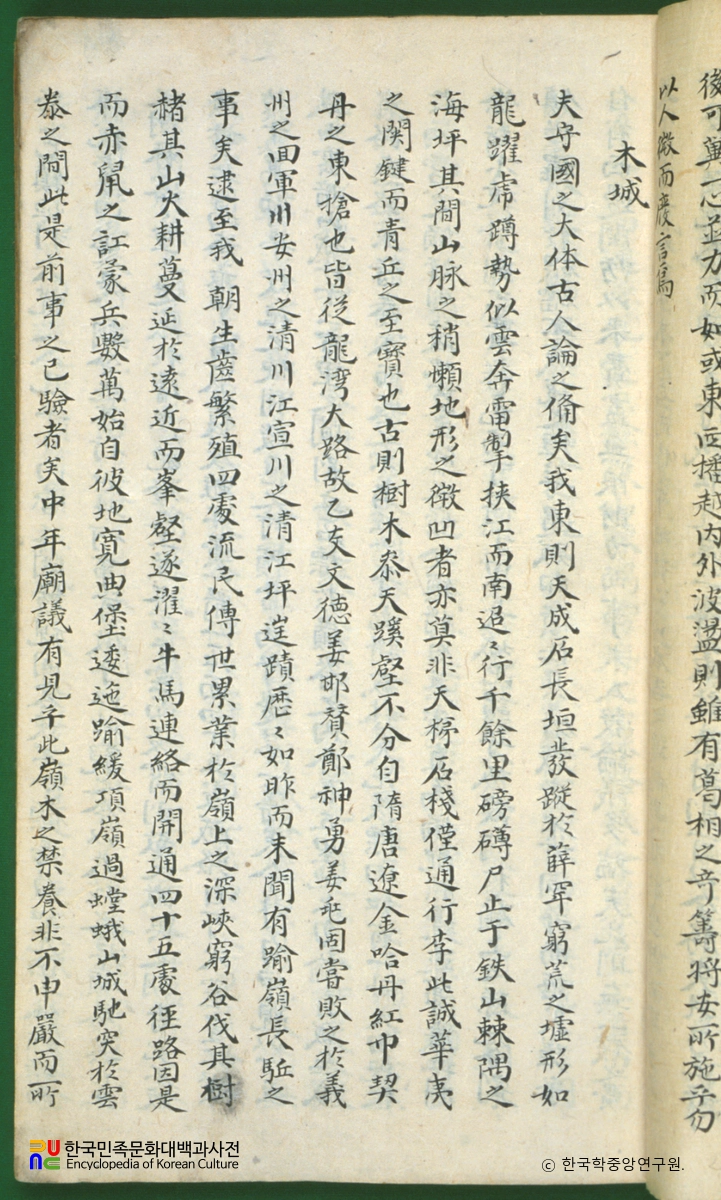 後可冀一心並力而如或東西播越內外波盪則雖有葛相之奇籌將安所施乎勿
以人微而廢言焉
木城
夫守國之大体古人論之備矣我東則天成石長垣發蹤於薛罕窮荒之墟形如
龍躍虎蹲勢似雲奔雷掣挾江而南迢〻行千餘里磅礴尸止于鉄山棘隅之
海坪其間山脉之稍懶地形之微凹者亦莫非天梯石棧僅通行李此誠華夷
之関鍵而青丘之至寶也古則樹木叅天蹊壑不分自隋唐遼金哈丹紅巾契
丹之東搶也皆從龍湾大路故乙支文德姜邯賛鄭神勇姜民固嘗敗之於義
州之回軍川安州之清川江宣川之清江坪遑蹟歷〻如昨而未聞有踰嶺長駈之
事矣逮至我 朝生齒繁殖四處流民傳世累業於嶺上之深峽窮谷伐其樹
赭其山火耕蔓延於遠近而峯壑遂濯〻牛馬連絡而開通四十五處徑路因是
而赤鼠之訌豪兵數萬始自彼地寬曲堡逶迤踰緩項嶺過螳蛾山城馳突於雲
泰之間此是前事之已驗者矣中年廟議有見乎此嶺木之禁養非不申嚴而所
한국민족문화대백과사전
Encyclopedia of Korean Culture
ⓒ 한국학중앙연구원.